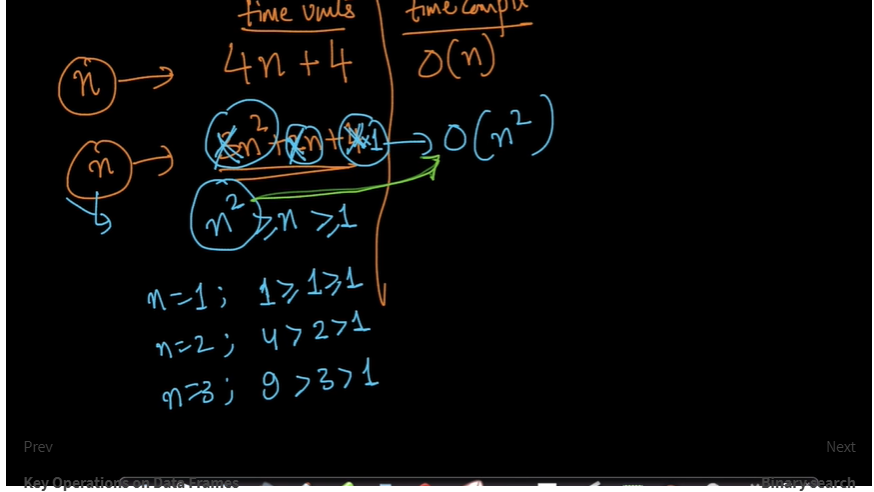 time units time complx
n → 4n + 4 O(n)
n → n² + n + 1 → O(n²)
n² ≥ n ≥ 1
n=1; 1 ≥ 1 ≥ 1
n=2; 4 > 2 > 1
n=3; 9 > 3 > 1
Prev Next
Key Operations on Data Frames Binary Search